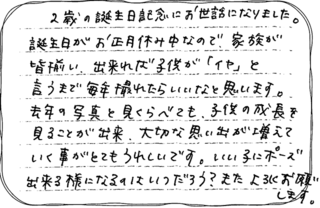 2歳の誕生日記念にお世話になりました。
誕生日がお正月休み中なので、家族が
皆揃い、出来れば子供が「イヤ」と
言うまで毎年撮れたらいいなと思います。
去年の写真と見くらべても、子供の成長を
見ることが出来、大切な思い出が増えて
いく事がとてもうれしいです。いい子にポーズ
出来る様になるのはいつだろう?またよろしくお願い
します。